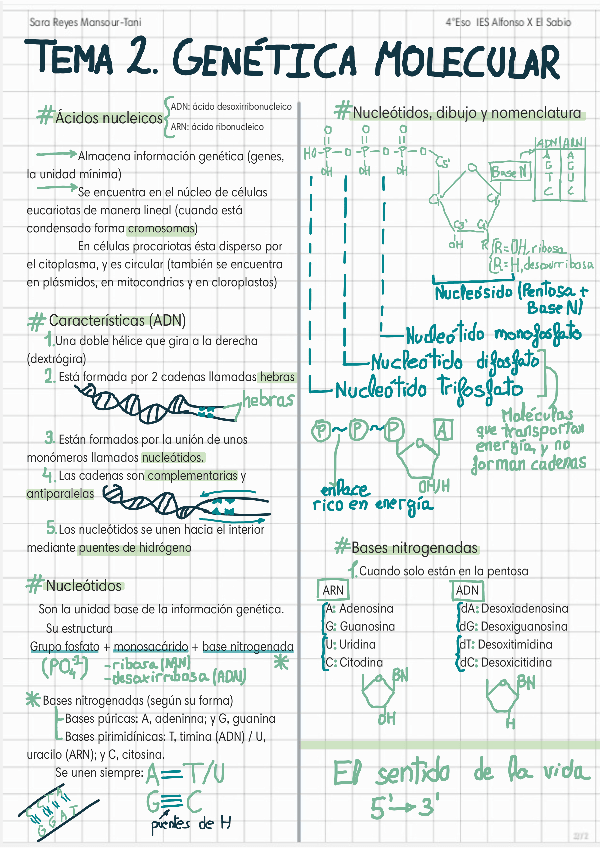 Sara Reyes Mansour-Tani
4°Eso IES Alfonso X El Sabio
TEMA 2. GENÉTICA MOLECULAR
#Ácidos nucleicos
ADN: ácido desoxirribonucleico
ARN: ácido ribonucleico
Almacena información genética (genes,
la unidad mínima)
Se encuentra en el núcleo de células
eucariotas de manera lineal (cuando está
condensado forma cromosomas)
En células procariotas ésta disperso por
el citoplasma, y es circular (también se encuentra
en plásmidos, en mitocondrias y en cloroplastos)
# Características (ADN)
1. Una doble hélice que gira a la derecha
(dextrógira)
2. Está formada por 2 cadenas llamadas hebras
hebras
3. Están formados por la unión de unos
monómeros llamados nucleótidos.
4. Las cadenas son complementarias y
antiparalelas
5. Los nucleótidos se unen hacia el interior
mediante puentes de hidrógeno
# Nucleótidos
Son la unidad base de la información genética.
Su estructura
Grupo fosfato + monosacárido + base nitrogenada
-ribosa (ARN)
-desoxirribosa (ADN)
*
* Bases nitrogenadas (según su forma)
Bases púricas: A, adeninna; y G, guanina
Bases pirimidínicas: T, timina (ADN) / U,
uracilo (ARN); y C, citosina.
Se unen siempre: A = T/U
G ≡ C
puentes de H
G G A T
#Nucleótidos, dibujo y nomenclatura
O O O
HO-P-O-P-O-P-O
OH OH OH
C5'
O
Base N
ADN ARN
A A
G G
T U
C C
OH R
R=OH, ribosa
R=H, desoxirribosa
Nucleósido (Pentosa +
Base N)
Nucleótido monofosfato
Nucleótido difosfato
Nucleótido trifosfato
Moléculas
que transportan
energía, y no
forman cadenas
P~P~P A
O
OH/H
enlace
rico en energía
#Bases nitrogenadas
1. Cuando solo están en la pentosa
ARN
A: Adenosina
G: Guanosina
U: Uridina
C: Citodina
BN
OH
ADN
dA: Desoxiadenosina
dG: Desoxiguanosina
dT: Desoxitimidina
dC: Desoxicitidina
BN
H
El sentido de la vida
5'→3'